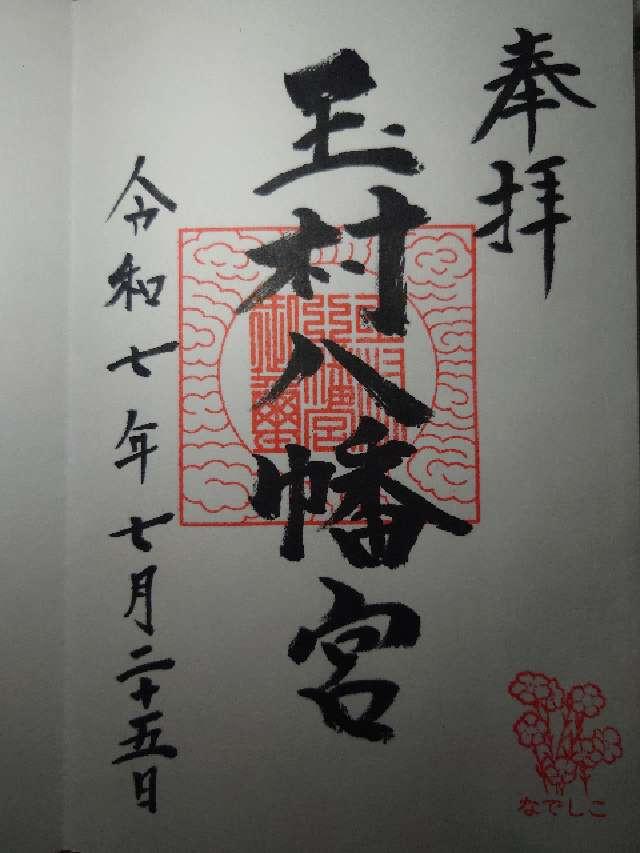 奉拝
玉村八幡宮
令和七年七月二十五日
なでしこ